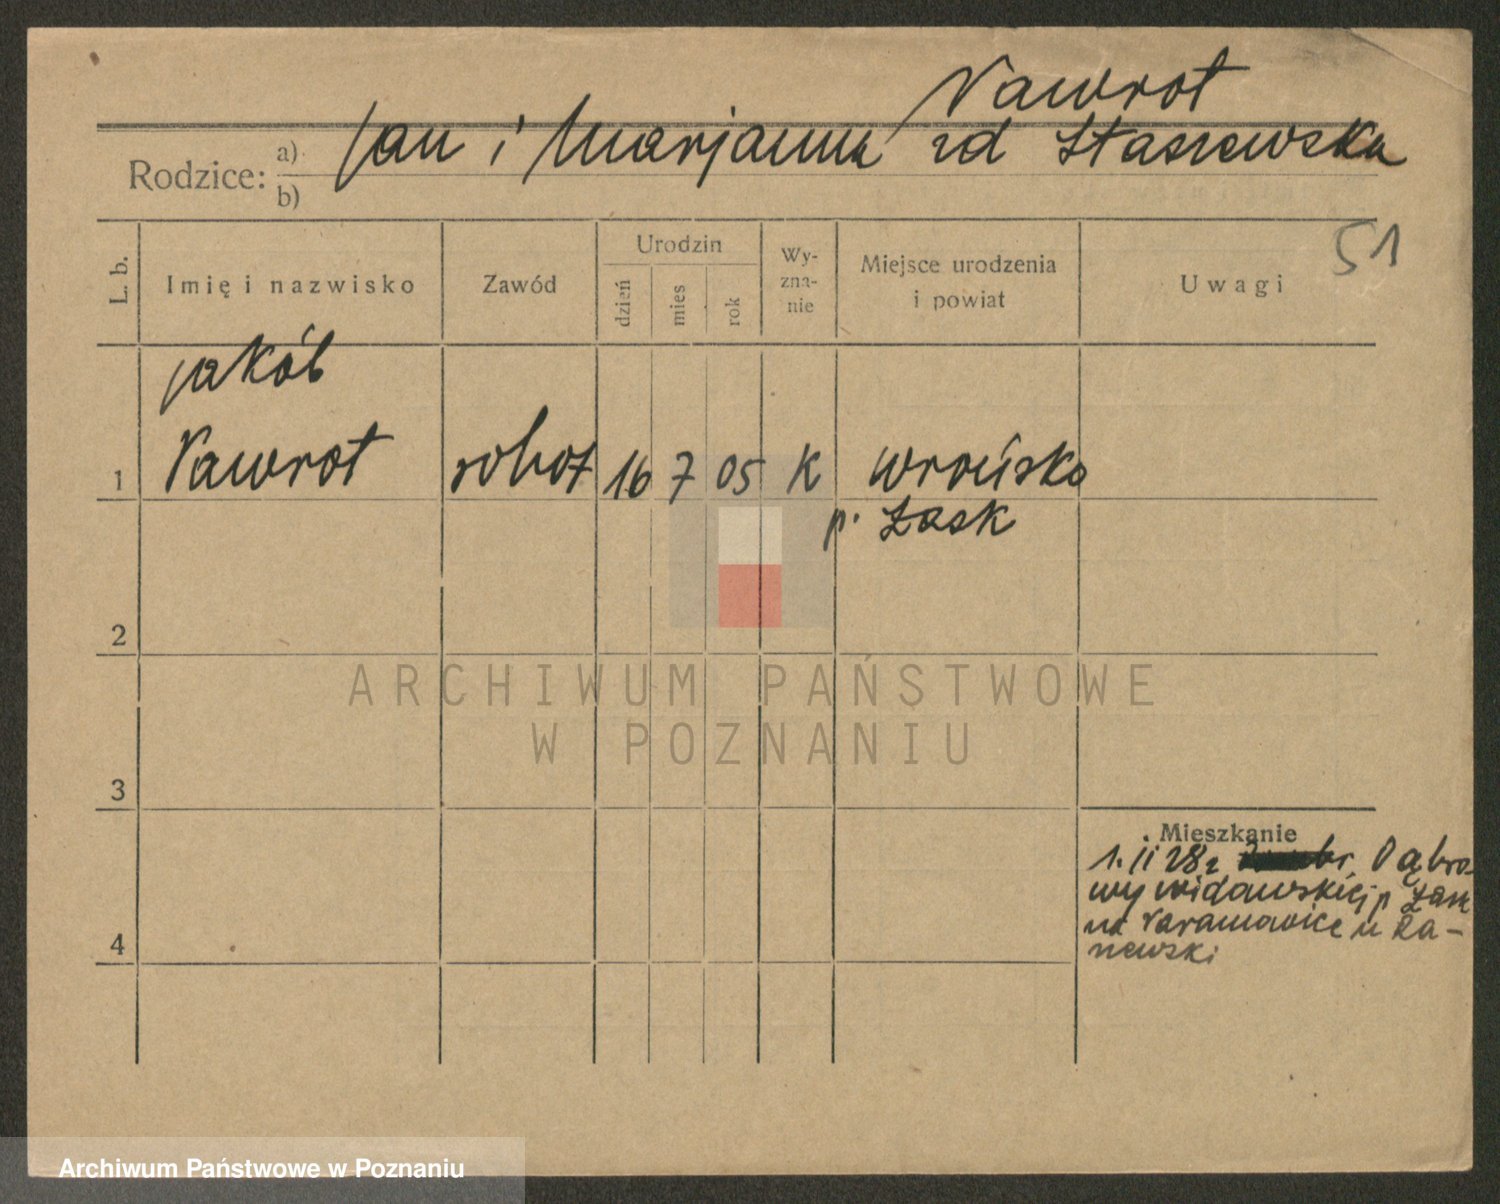 Nawrot
Rodzice: a) Jan i Marjanna zd Staszewska
b)
51
L. b. Imię i nazwisko Zawód Urodzin dzień mies rok Wy-zna-nie Miejsce urodzenia i powiat Uwagi
Jakób
1 Nawrot robot 16 7 05 K Wrońsko
p. Łask
2
ARCHIWUM PAŃSTWOWE
W POZNANIU
3
Mieszkanie
1. II 28 z Dąbro-
wy widawskiej p Łask
na u Ra-
Archiwum Państwowe w Poznaniu
4